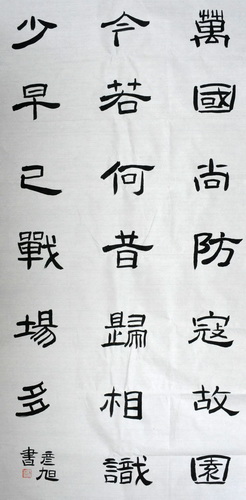 萬國尚防寇故園
今若何昔歸相識
少早已戰場多
旭
書